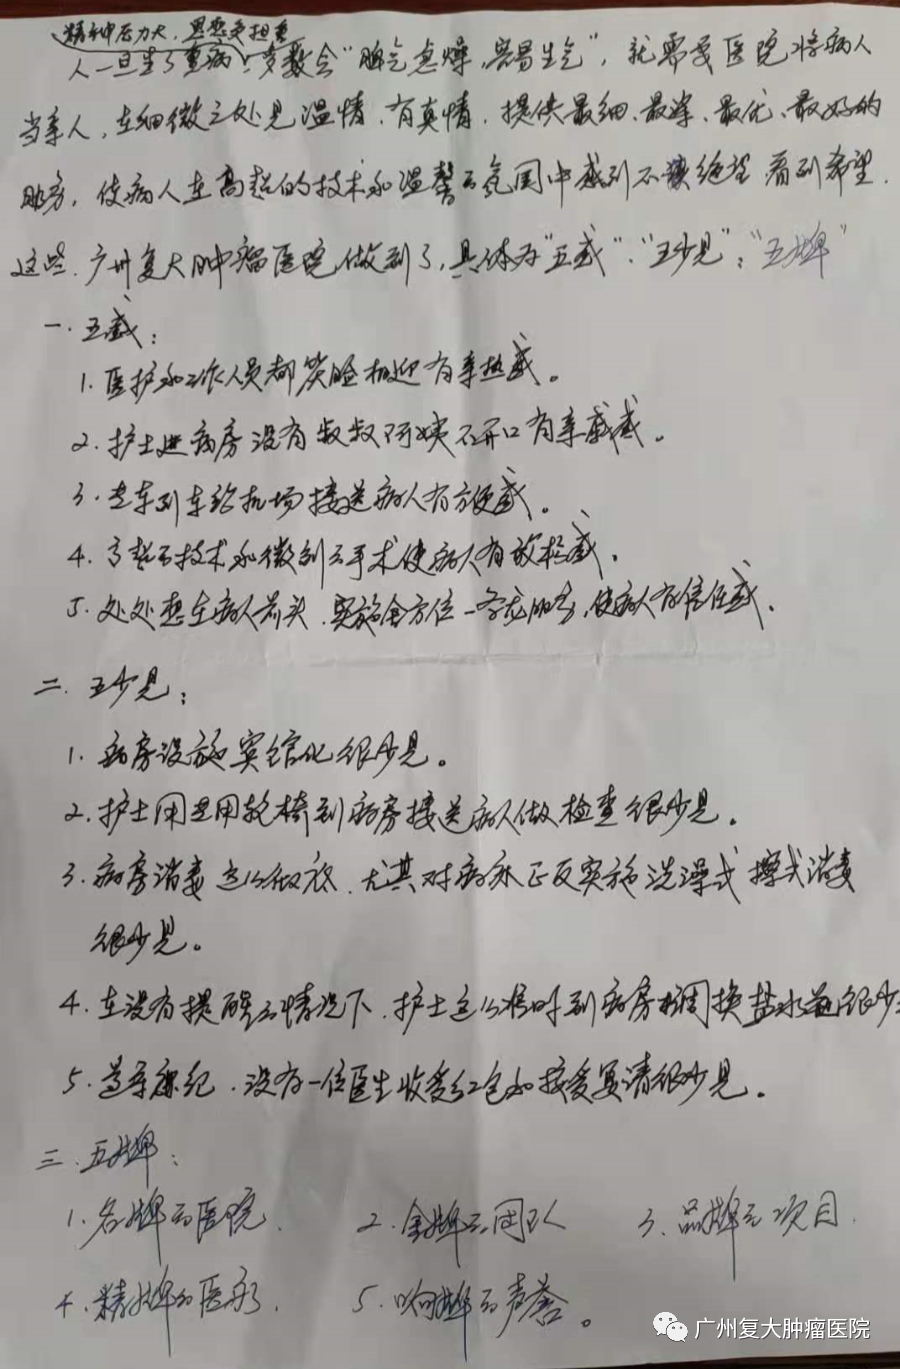 精神压力大，思想负担重
人一旦生了重病，多数会“脾气急燥，容易生气”，就需要医院将病人
当亲人，在细微之处见温情、有真情，提供最细、最深、最优、最好的
服务，使病人在高超的技术和温馨的氛围中感到不绝望看到希望。
这些，广州复大肿瘤医院做到了，具体为“五感”、“五少见”、“五牌”
一．五感：
1. 医护和工作人员都笑脸相迎有亲热感。
2. 护士进病房没有叔叔阿姨不开口有亲戚感。
3. 专车到车站机场接送病人有方便感。
4. 高超的技术和微创的手术使病人有放松感。
5. 处处想在病人前头，实施全方位一条龙服务，使病人有信任感。
二．五少见：
1. 病房设施宾馆化很少见。
2. 护士用专用轮椅到病房接送病人做检查很少见。
3. 病房消毒这么彻底，尤其对病床正反实施洗澡式擦式消毒
很少见。
4. 在没有提醒的情况下，护士这么准时到病房调换盐水很少
5. 遵守廉纪，没有一位医生收受红包和接受宴请很少见。
三．五牌：
1. 名牌的医院． 2. 金牌的团队 3. 品牌的项目．
4. 精牌的医疗． 5. 响牌的声誉。
广州复大肿瘤医院